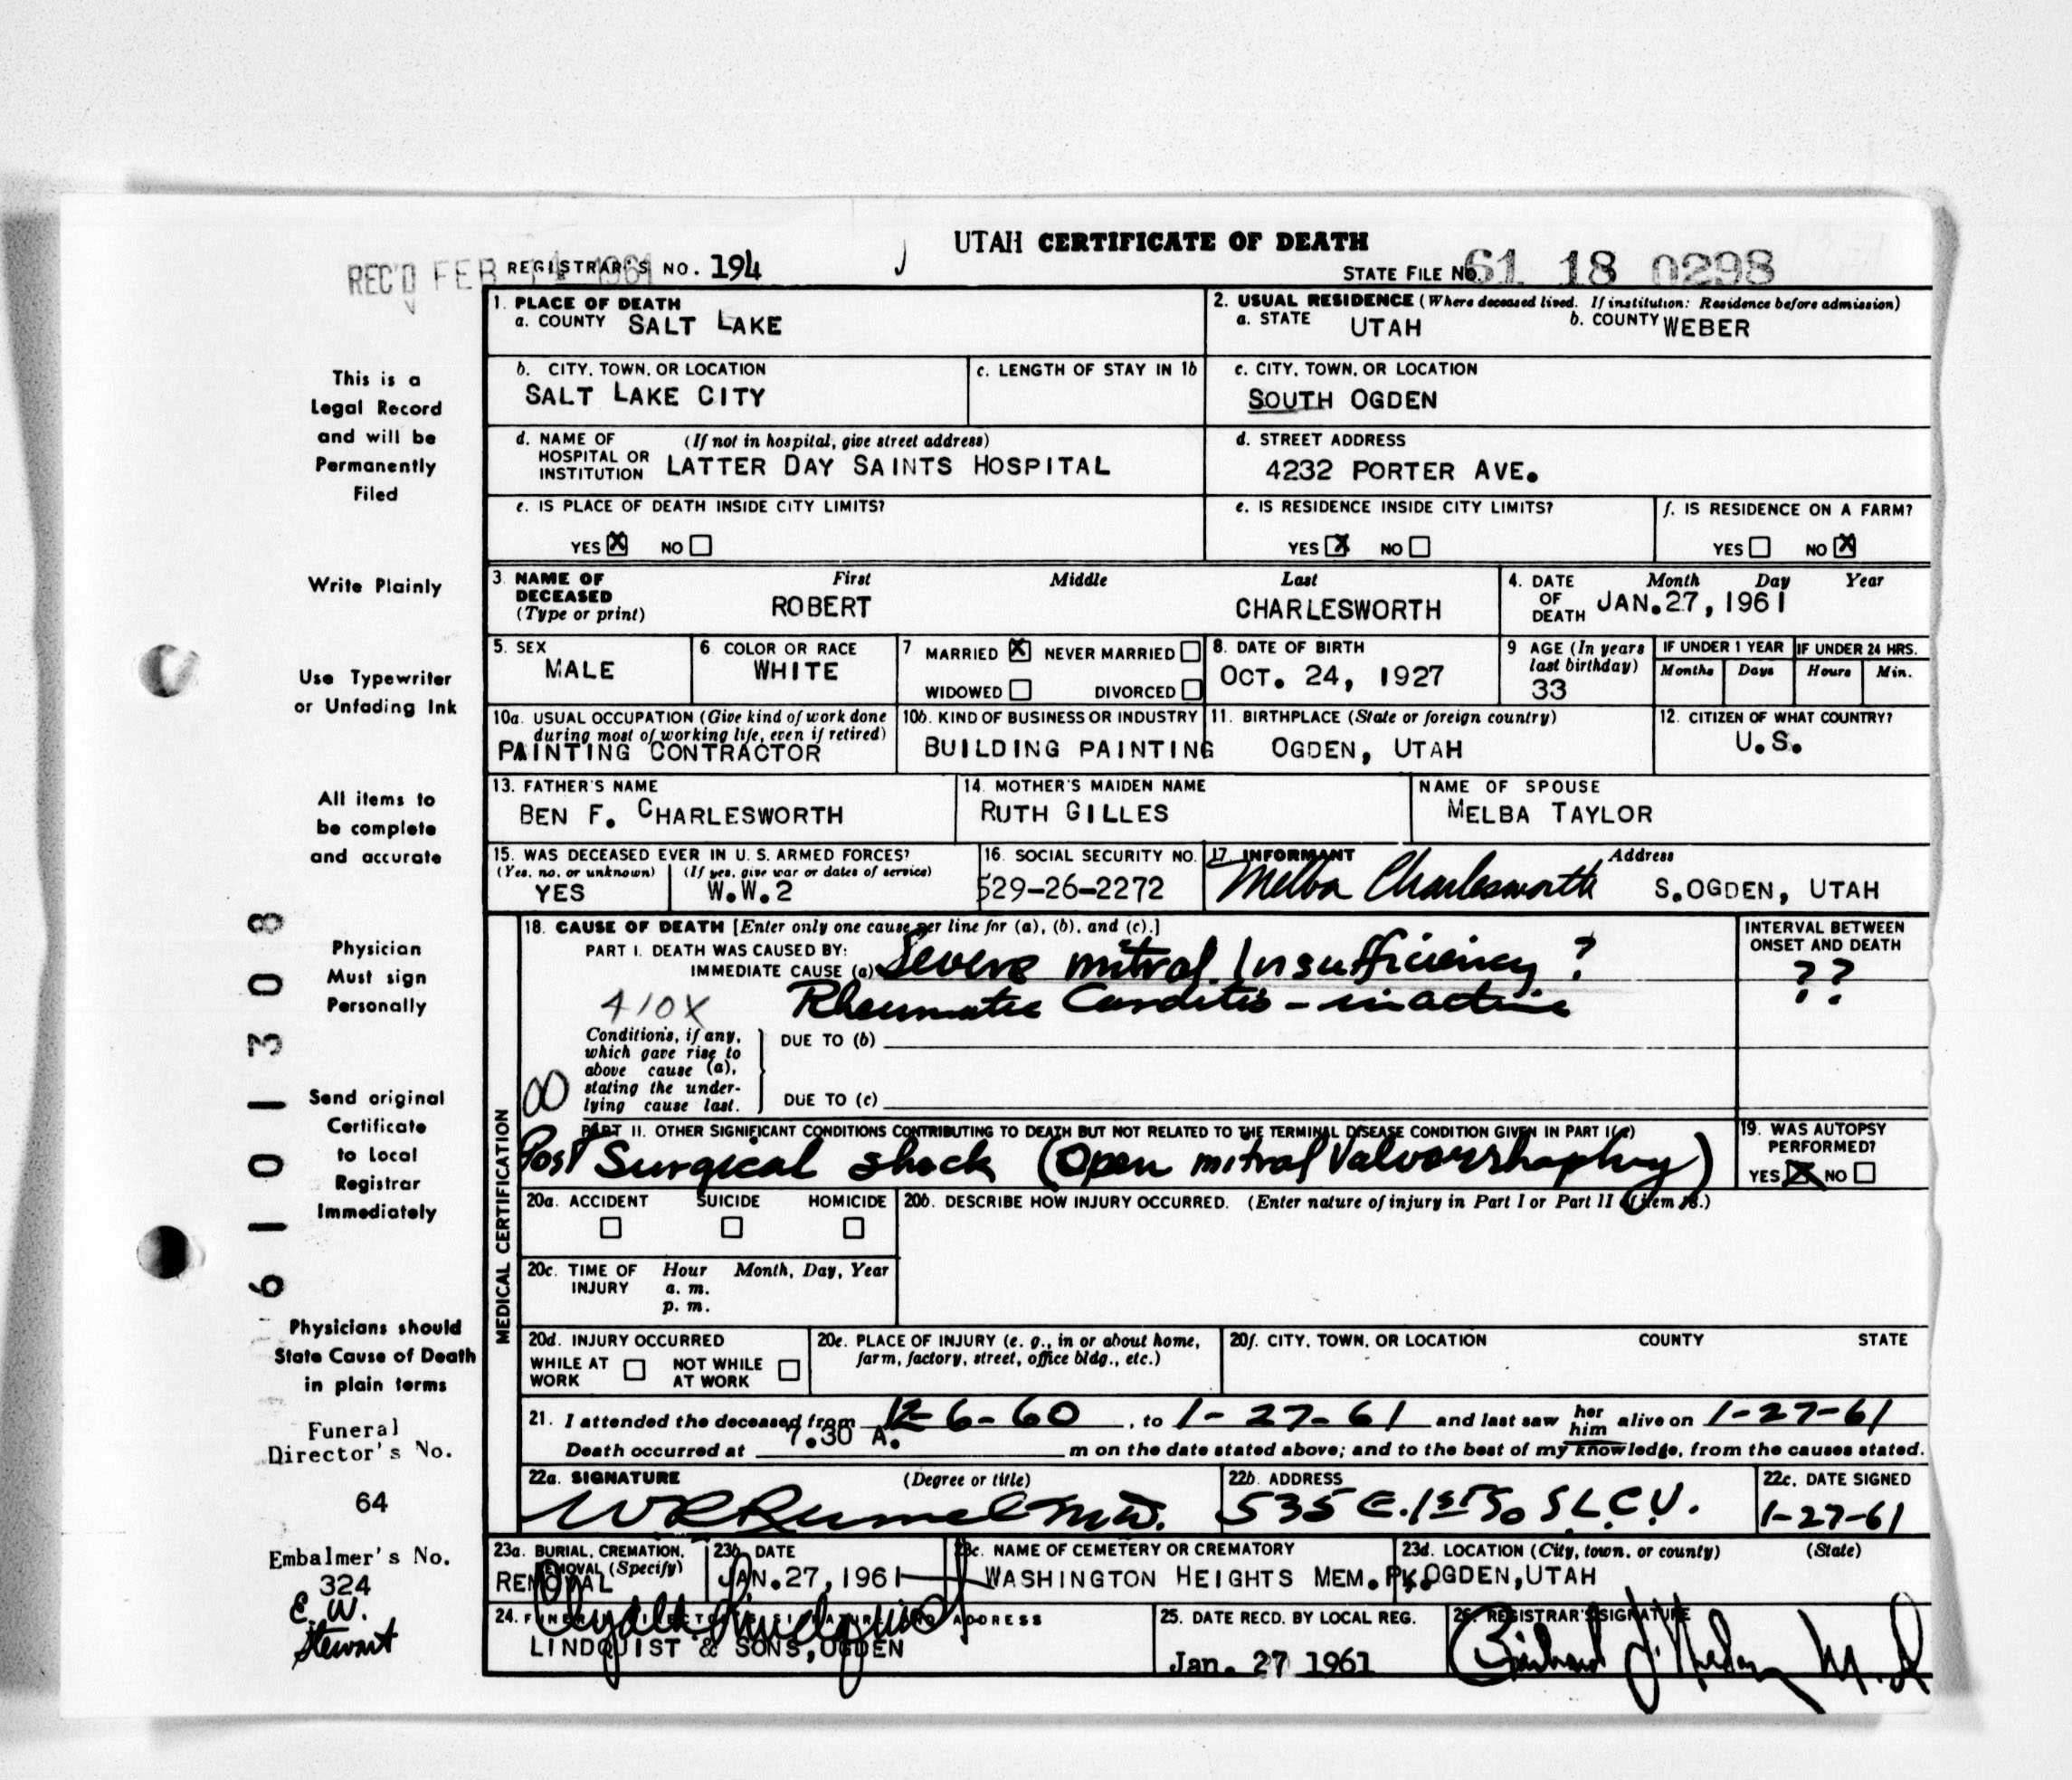 UTAH CERTIFICATE OF DEATH
REC'D FEB 1961 REGISTRAR'S NO. 194
STATE FILE NO. 61 18 0298
This is a
Legal Record
and will be
Permanently
Filed
Write Plainly
Use Typewriter
or Unfading Ink
All items to
be complete
and accurate
Physician
Must sign
Personally
Send original
Certificate
to Local
Registrar
Immediately
Physicians should
State Cause of Death
in plain terms
Funeral
Director's No.
64
Embalmer's No.
324
E. W.
Stewart
6 1 0 1 3 0 8
1. PLACE OF DEATH
a. COUNTY SALT LAKE
2. USUAL RESIDENCE (Where deceased lived. If institution: Residence before admission)
a. STATE UTAH b. COUNTY WEBER
b. CITY, TOWN, OR LOCATION
SALT LAKE CITY
c. LENGTH OF STAY IN 1b
c. CITY, TOWN, OR LOCATION
SOUTH OGDEN
d. NAME OF (If not in hospital, give street address)
HOSPITAL OR
INSTITUTION LATTER DAY SAINTS HOSPITAL
d. STREET ADDRESS
4232 PORTER AVE.
e. IS PLACE OF DEATH INSIDE CITY LIMITS?
YES X NO
e. IS RESIDENCE INSIDE CITY LIMITS?
YES X NO
f. IS RESIDENCE ON A FARM?
YES NO X
3. NAME OF First Middle Last
DECEASED
(Type or print) ROBERT CHARLESWORTH
4. DATE Month Day Year
OF
DEATH JAN.27, 1961
5. SEX
MALE
6. COLOR OR RACE
WHITE
7 MARRIED X NEVER MARRIED
WIDOWED DIVORCED
8. DATE OF BIRTH
OCT. 24, 1927
9 AGE (In years
last birthday)
33
IF UNDER 1 YEAR
Months Days
IF UNDER 24 HRS.
Hours Min.
10a. USUAL OCCUPATION (Give kind of work done
during most of working life, even if retired)
PAINTING CONTRACTOR
10b. KIND OF BUSINESS OR INDUSTRY
BUILDING PAINTING
11. BIRTHPLACE (State or foreign country)
OGDEN, UTAH
12. CITIZEN OF WHAT COUNTRY?
U.S.
13. FATHER'S NAME
BEN F. CHARLESWORTH
14. MOTHER'S MAIDEN NAME
RUTH GILLES
NAME OF SPOUSE
MELBA TAYLOR
15. WAS DECEASED EVER IN U. S. ARMED FORCES?
(Yes, no, or unknown) (If yes, give war or dates of service)
YES W.W.2
16. SOCIAL SECURITY NO.
529-26-2272
17. INFORMANT Address
Melba Charlesworth S.OGDEN, UTAH
MEDICAL CERTIFICATION
18. CAUSE OF DEATH [Enter only one cause per line for (a), (b), and (c).]
PART I. DEATH WAS CAUSED BY:
IMMEDIATE CAUSE (a) Severe mitral Insufficiency ?
410X Rheumatic Carditis - inactive
INTERVAL BETWEEN
ONSET AND DEATH
? ?
Conditions, if any,
which gave rise to
above cause (a),
stating the under-
lying cause last.
DUE TO (b)
DUE TO (c)
PART II. OTHER SIGNIFICANT CONDITIONS CONTRIBUTING TO DEATH BUT NOT RELATED TO THE TERMINAL DISEASE CONDITION GIVEN IN PART I(a)
Post Surgical shock (Open mitral Valvorrhaphy)
19. WAS AUTOPSY
PERFORMED?
YES X NO
20a. ACCIDENT SUICIDE HOMICIDE
20b. DESCRIBE HOW INJURY OCCURRED. (Enter nature of injury in Part I or Part II of item 18.)
20c. TIME OF Hour Month, Day, Year
INJURY a. m.
p. m.
20d. INJURY OCCURRED
WHILE AT NOT WHILE
WORK AT WORK
20e. PLACE OF INJURY (e. g., in or about home,
farm, factory, street, office bldg., etc.)
20f. CITY, TOWN, OR LOCATION COUNTY STATE
21. I attended the deceased from 12-6-60, to 1-27-61 and last saw her him alive on 1-27-61
Death occurred at 7.30 A. m on the date stated above; and to the best of my knowledge, from the causes stated.
22a. SIGNATURE (Degree or title)
W R Rumel M.D.
22b. ADDRESS
535 E. 1st So S.L.C.U.
22c. DATE SIGNED
1-27-61
23a. BURIAL, CREMATION,
REMOVAL (Specify)
REMOVAL
23b. DATE
JAN.27,1961
23c. NAME OF CEMETERY OR CREMATORY
WASHINGTON HEIGHTS MEM.PK.
23d. LOCATION (City, town, or county) (State)
OGDEN,UTAH
24. FUNERAL DIRECTOR'S SIGNATURE AND ADDRESS
LINDQUIST & SONS,OGDEN
25. DATE RECD. BY LOCAL REG.
Jan. 27 1961
26. REGISTRAR'S SIGNATURE